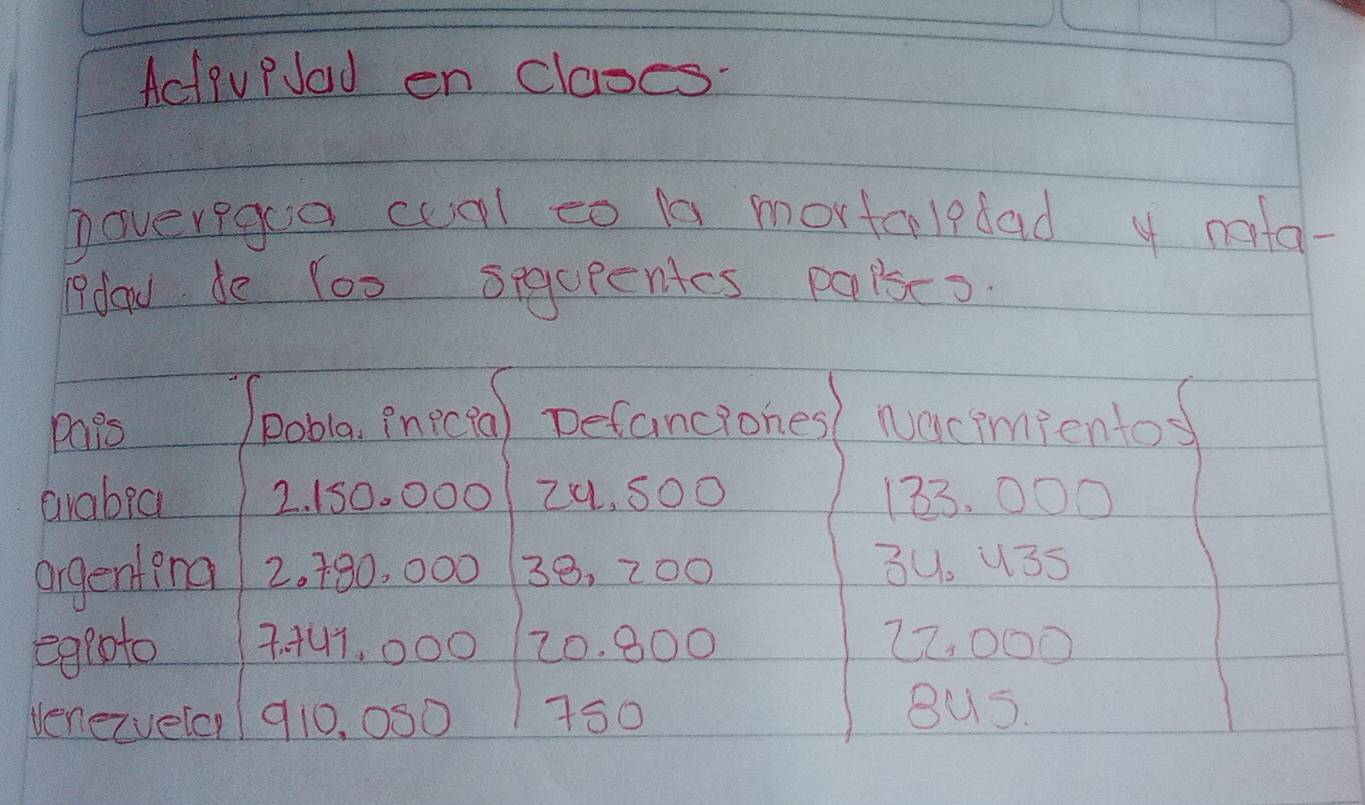 Actividad en clases.
averigua cual es la mortalidad y nata-
lidad de los siguientes paises.
Pais Pobla. inicial Defunciones Nacimientos
arabia 2.150.000 24.500 133.000
argentina 2.780.000 38,200 34.435
egipto 7.741.000 20.800 22.000
venezuela 910.050 750 845.